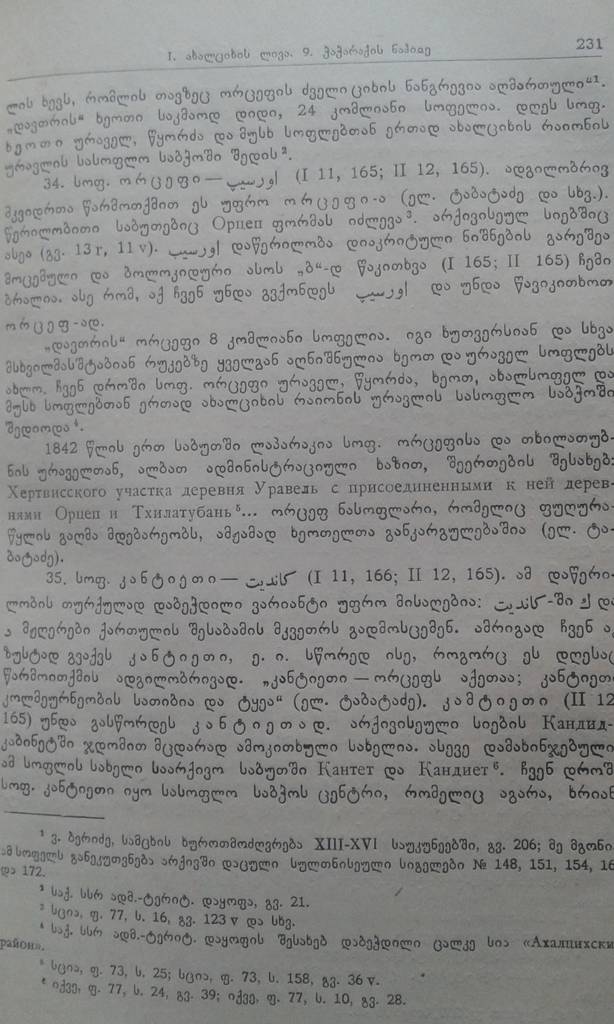 I. ახალციხის ლივა. 9. ჭაჭარაქის ნაჰიიე 231
ლის ხევს, რომლის თავზეც ორცეფის ძველი ციხის ნანგრევია აღმართული“¹.
„დავთრის“ ხეოთი საკმაოდ დიდი, 24 კომლიანი სოფელია. დღეს სოფ.
ხეოთი ურაველ, წყორძა და მუსხ სოფლებთან ერთად ახალციხის რაიონის
ურავლის სასოფლო საბჭოში შედის².
34. სოფ. ორცეფი — اورسيپ (I 11, 165; II 12, 165). ადგილობრივ
მკვიდრთა წარმოთქმით ეს უფრო ორცეფი-ა (ელ. ტაბატაძე და სხვ.).
წერილობითი საბუთებიც Орцеп ფორმას იძლევა³. არქივისეულ სიებშიც
ასეა (გვ. 13 r, 11 v). اورسيپ დაწერილობა დიაკრიტული ნიშნების გარეშეა
მოცემული და ბოლოკიდური ასოს „ბ“-დ წაკითხვა (I 165; II 165) ჩემი
ბრალია. ასე რომ, აქ ჩვენ უნდა გვქონდეს اورسيپ და უნდა წავიკითხოთ
ორცეფ-ად.
„დავთრის“ ორცეფი 8 კომლიანი სოფელია. იგი ხუთვერსიან და სხვა
მსხვილმასშტაბიან რუკებზე ყველგან აღნიშნულია ხეოთ და ურაველ სოფლებს
ახლო. ჩვენ დროში სოფ. ორცეფი ურაველ, წყორძა, ხეოთ, ახალსოფელ და
მუსხ სოფლებთან ერთად ახალციხის რაიონის ურავლის სასოფლო საბჭოში
შედიოდა⁴.
1842 წლის ერთ საბუთში ლაპარაკია სოფ. ორცეფისა და თხილათუბ-
ნის ურაველთან, ალბათ ადმინისტრაციული ხაზით, შეერთების შესახებ:
Хертвисского участка деревня Уравель с присоединенными к ней дерев-
нями Орцеп и Тхилатубань⁵... ორცეფ ნასოფლარი, რომელიც ფუღურა-
წყლის გაღმა მდებარეობს, ამჟამად ხეოთელთა განკარგულებაშია (ელ. ტა-
ბატაძე).
35. სოფ. კანტიეთი — كانديت (I 11, 166; II 12, 165). ამ დაწერი-
ლობის თურქულად დაბეჭდილი ვარიანტი უფრო მისაღებია: كانديت-ში ك და
د მჟღერები ქართულის შესაბამის მკვეთრს გადმოსცემენ. ამრიგად ჩვენ ა
ზუსტად გვაქვს კანტიეთი, ე. ი. სწორედ ისე, როგორც ეს დღესაც
წარმოითქმის ადგილობრივად. „კანტიეთი — ორცეფს აქეთაა; კანტიეთი
კოლმეურნეობის სათიბია და ტყეა“ (ელ. ტაბატაძე). კამტიეთი (II 12
165) უნდა გასწორდეს კანტიეთად. არქივისეული სიების Кандид-
კაბინეტში ჯდომით მცდარად ამოკითხული სახელია. ასევე დამახინჯებული
ამ სოფლის სახელი საარქივო საბუთში Кантет და Кандиет⁶. ჩვენ დროშ
სოფ. კანტიეთი იყო სასოფლო საბჭოს ცენტრი, რომელიც აგარა, ხრიან
¹ ვ. ბერიძე, სამცხის ხუროთმოძღვრება XIII-XVI საუკუნეებში, გვ. 206; მე მგონი
ამ სოფელს განეკუთვნება არქივში დაცული სულთნისეული სიგელები № 148, 151, 154, 16
და 172.
² საქ. სსრ ადმ.-ტერიტ. დაყოფა, გვ. 21.
³ სცია, ფ. 77, ს. 16, გვ. 123 v და სხვ.
⁴ საქ. სსრ ადმ.-ტერიტ. დაყოფის შესახებ დაბეჭდილი ცალკე სია «Ахалцихски
район».
⁵ სცია, ფ. 73, ს. 25; სცია, ფ. 73, ს. 158, გვ. 36 v.
⁶ იქვე, ფ. 77, ს. 24, გვ. 39; იქვე, ფ. 77, ს. 10, გვ. 28.